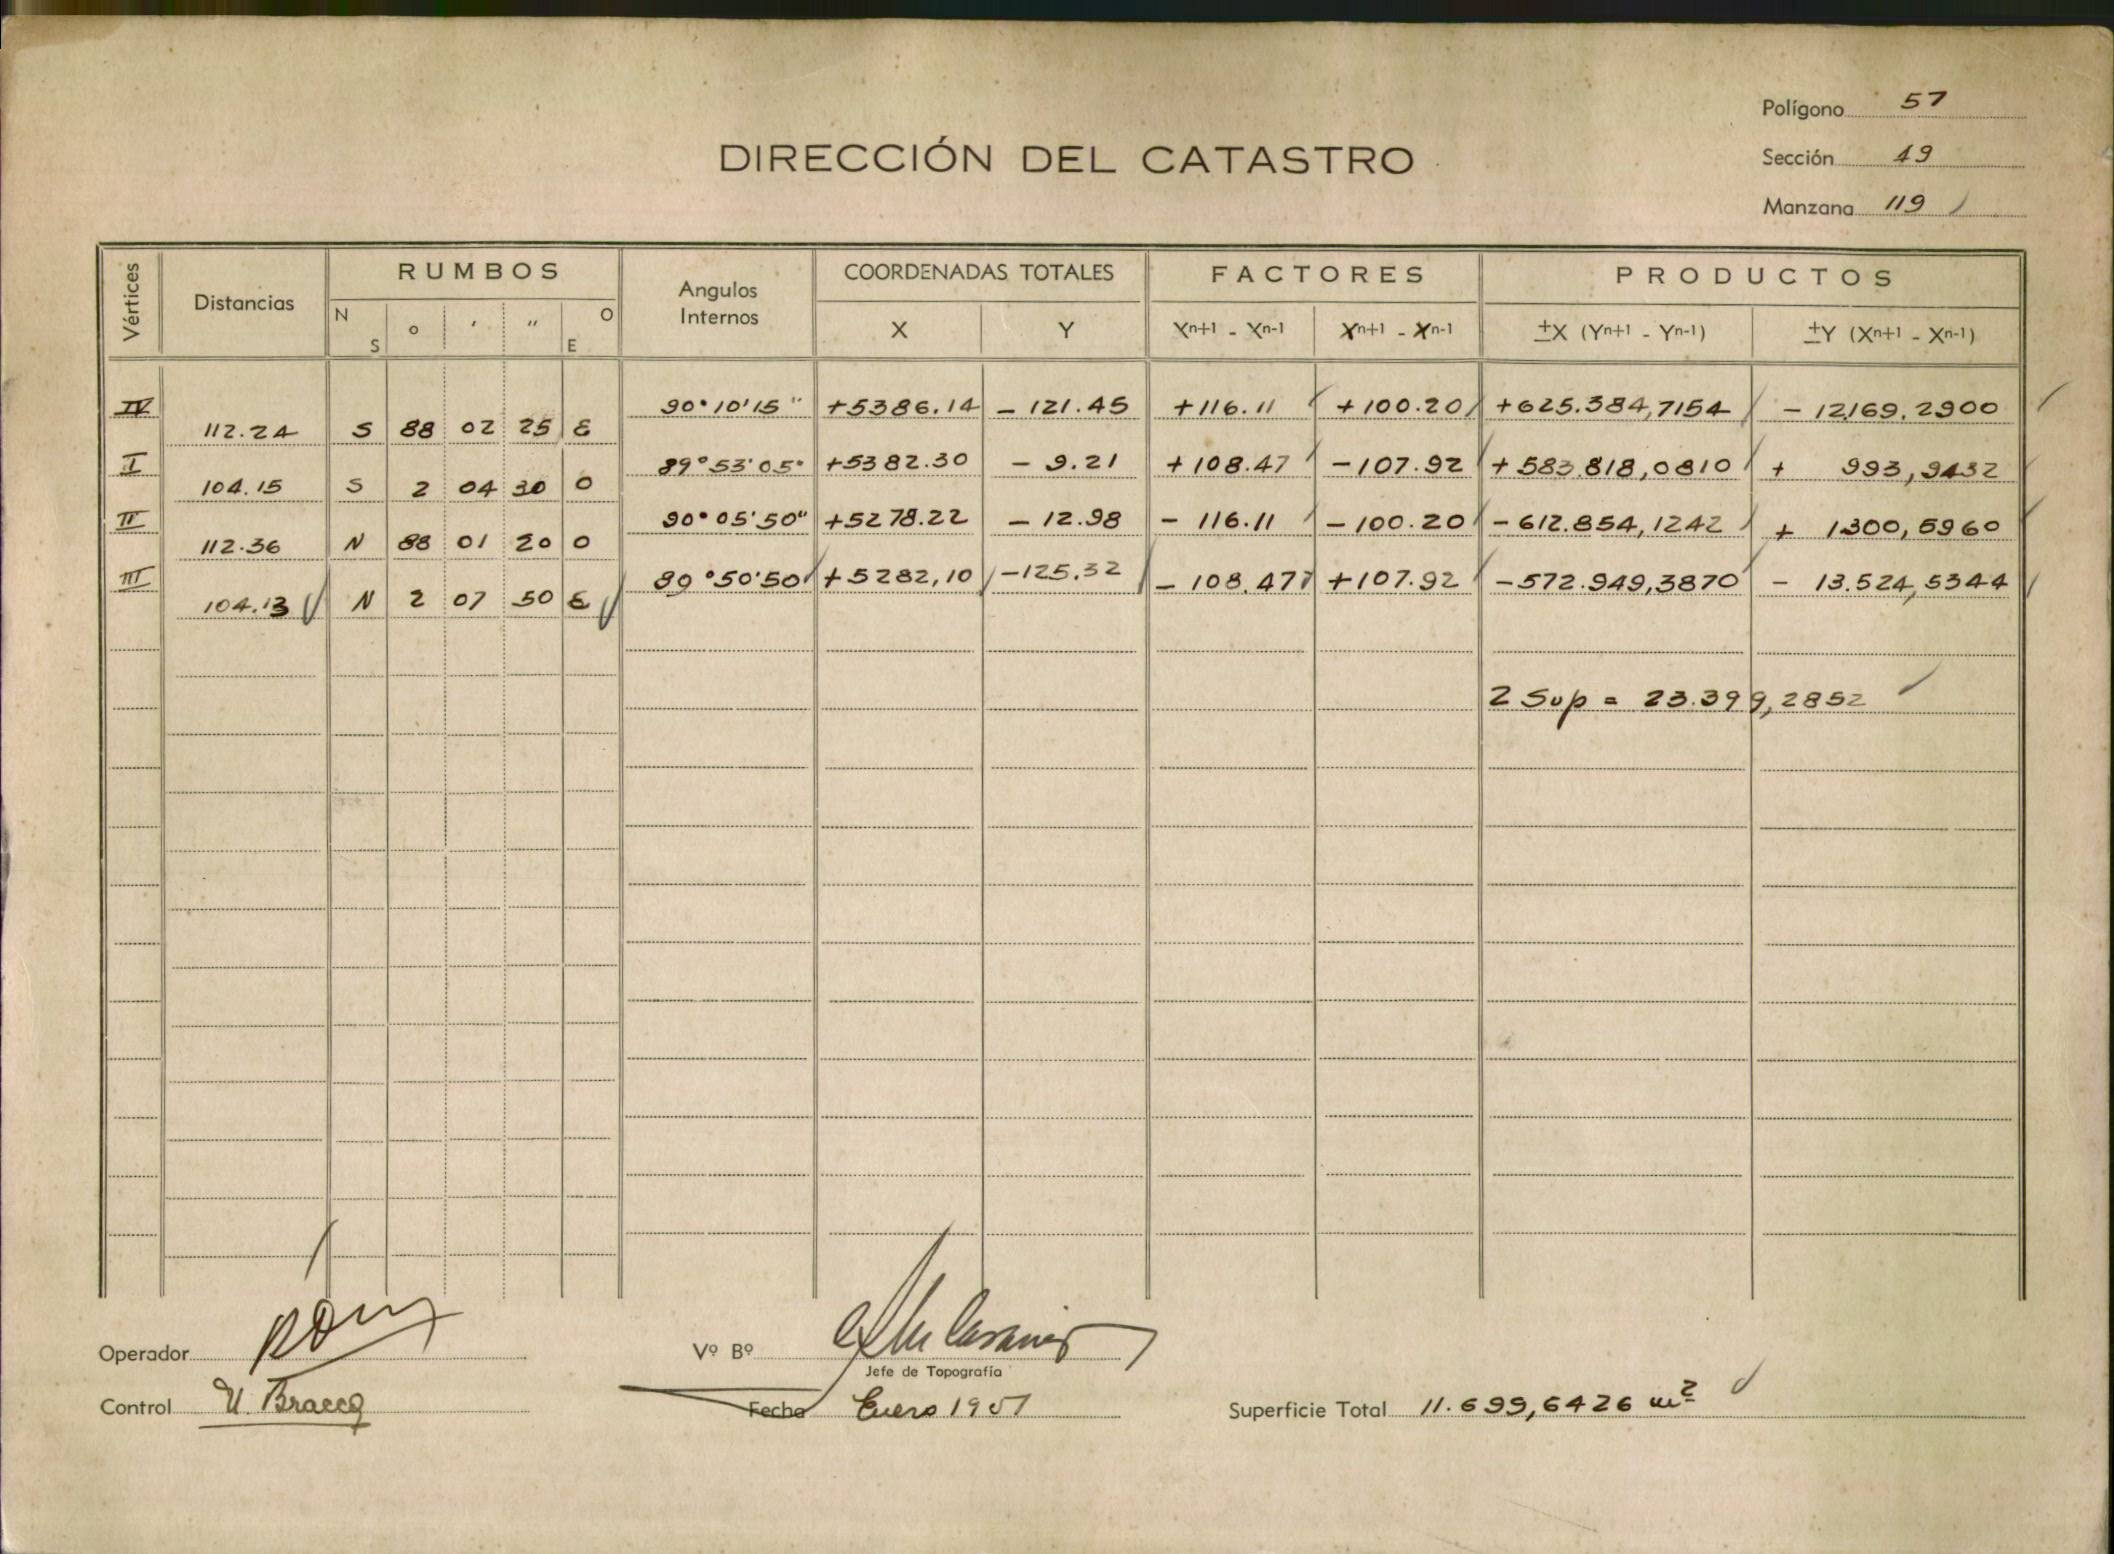 Polígono 57
DIRECCIÓN DEL CATASTRO
Sección 49
Manzana 119
Vértices
Distancias
RUMBOS
N S ° ' " O E
Angulos Internos
COORDENADAS TOTALES
X Y
FACTORES
Xn+1 - Xn-1 Xn+1 - Xn-1
PRODUCTOS
±X (Yn+1 - Yn-1) ±Y (Xn+1 - Xn-1)
IV 90°10'15" +5386.14 - 121.45 +116.11 +100.20 +625.384,7154 - 12.169,2900
112.24 S 88 02 25 E
I 89°53'05" +5382.30 - 9.21 +108.47 -107.92 +583.818,0810 + 993,9432
104.15 S 2 04 30 O
II 90°05'50" +5278.22 - 12.98 - 116.11 -100.20 -612.854,1242 + 1300,5960
112.36 N 88 01 20 O
III 89°50'50" +5282,10 -125.32 - 108.47 +107.92 -572.949,3870 - 13.524,5344
104.13 N 2 07 50 E
2 Sup = 23.399,2852
Operador
Vº Bº
Jefe de Topografía
Control U. Bracco
Fecha Enero 1951
Superficie Total 11.699,6426 m2